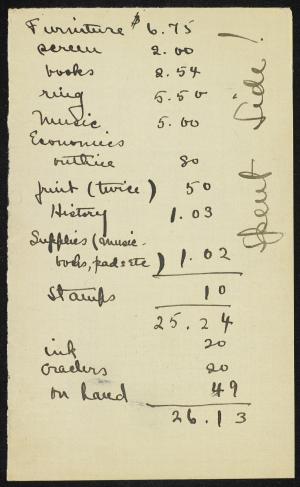 Furniture $6.75
screen 2.00
books 2.54
ring 5.50
Music 5.00
Economics
outline 80
print (twice) 50
History 1.03
Supplies (music-
books, pads etc) 1.02
Stamps 10
25.24
ink 20
Crackers 20
on hand 49
26.13
Spent Side!